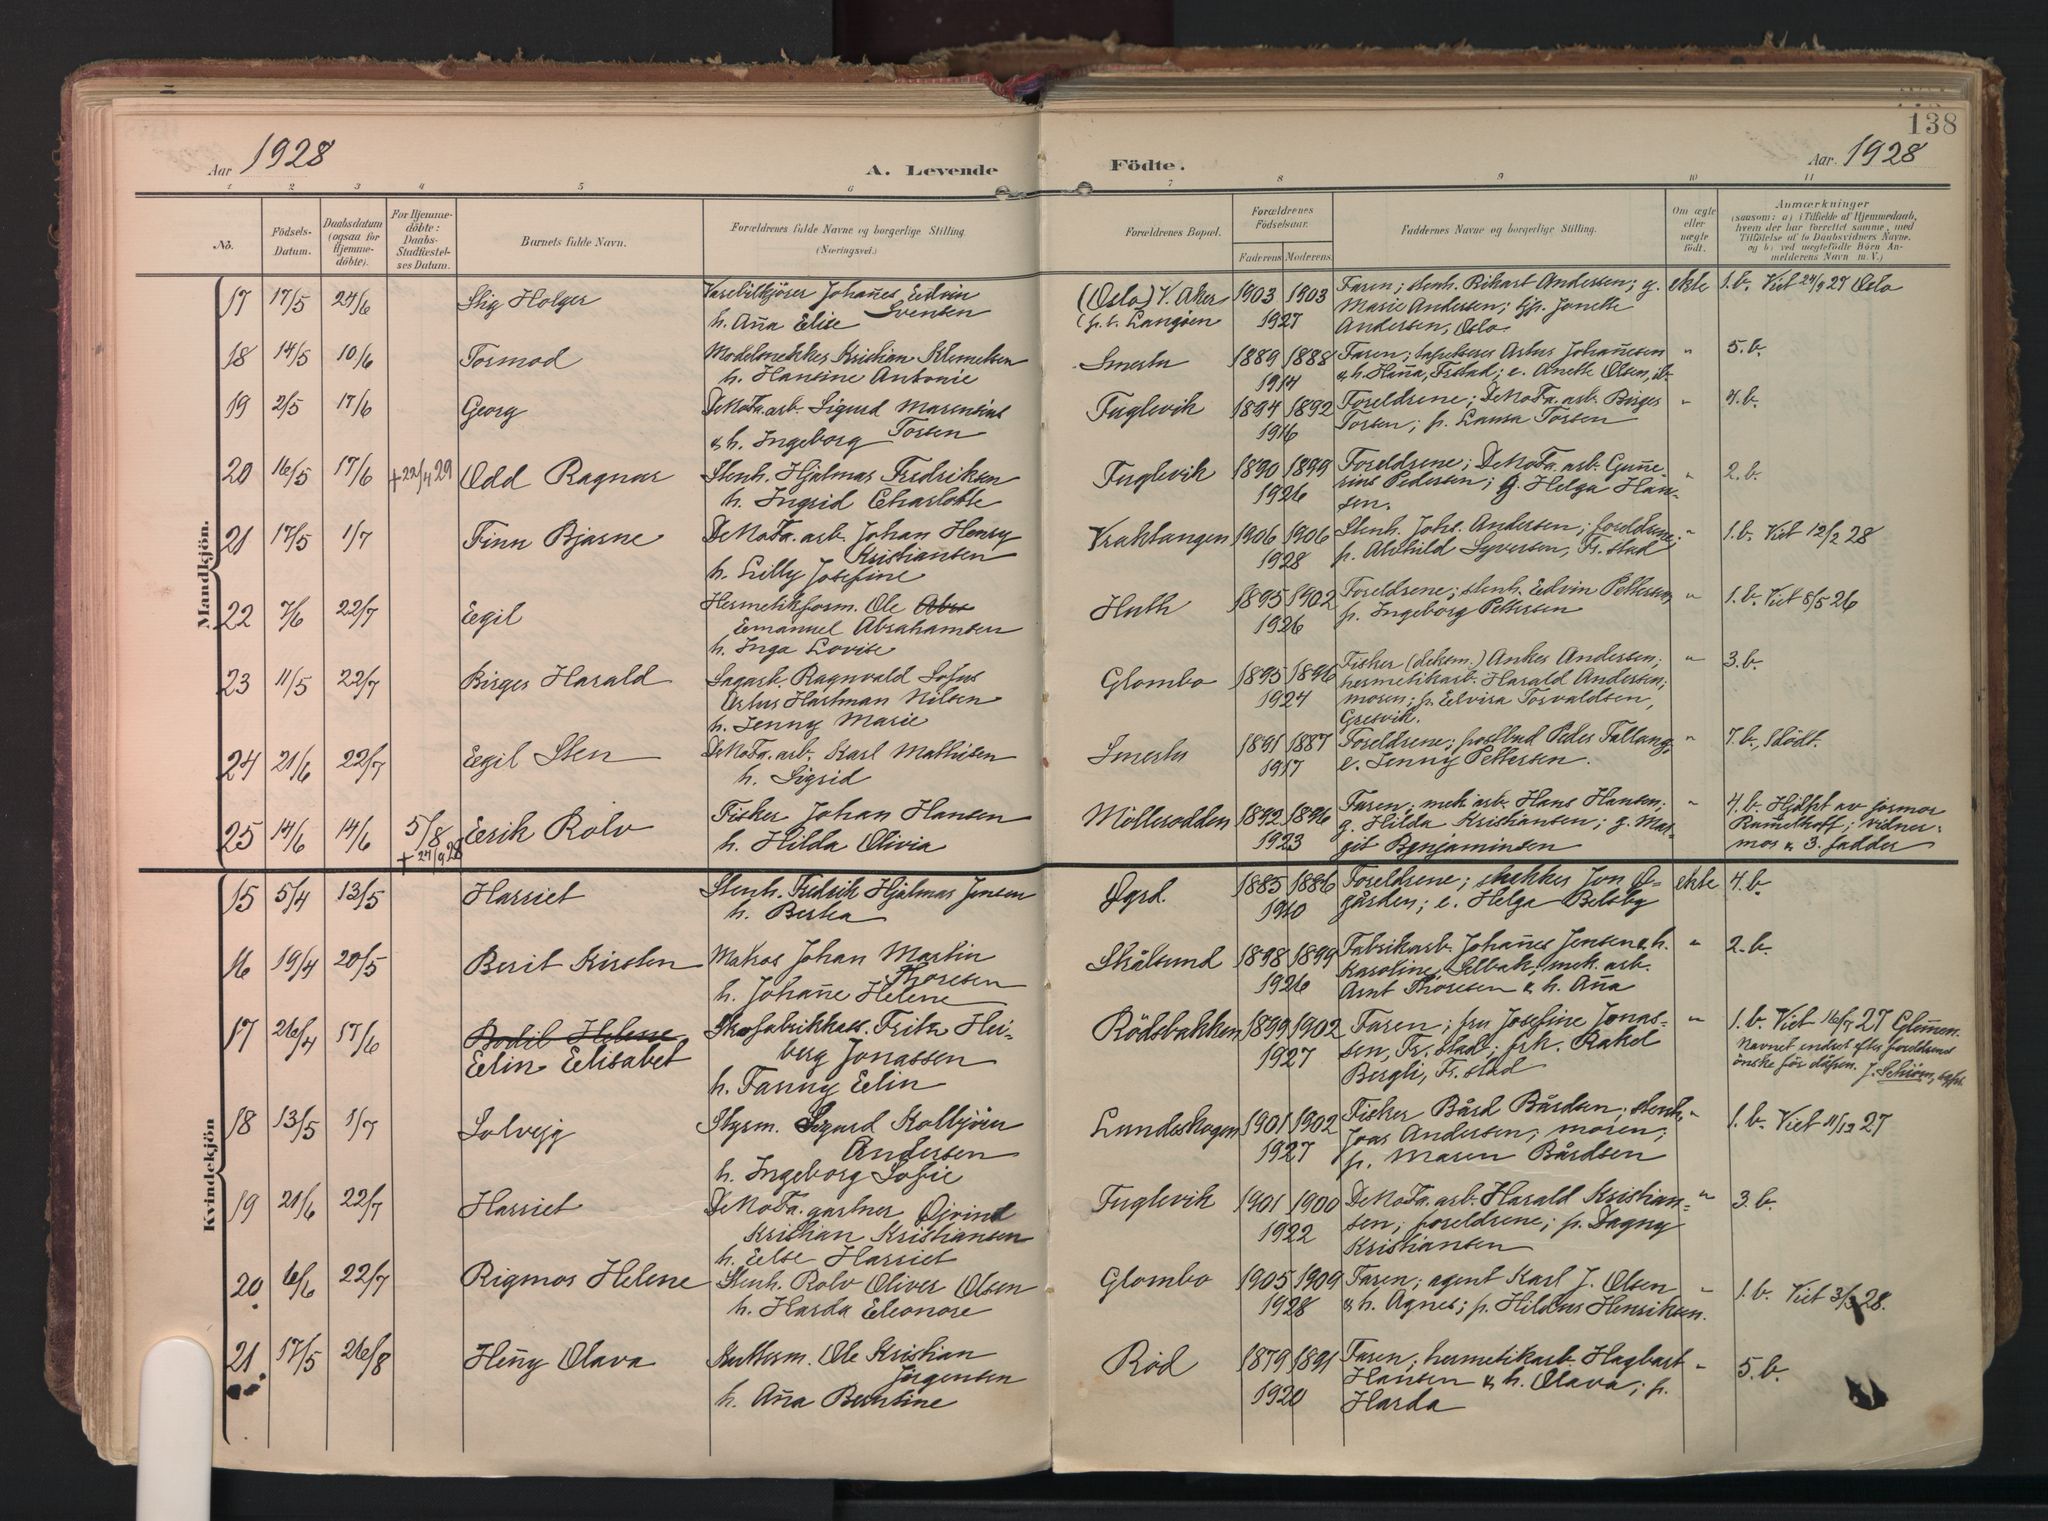 138
Aar 1928
A. Levende
Födte.
Aar. 1928
1 2 3 4 5 6 7 8 9 10 11
No.
Födsels-
Datum.
Daabsdatum
(ogsaa for
Hjemme-
döbte).
For Hjemme-
döbte:
Daabs-
Stadfæstel-
ses Datum.
Barnets fulde Navn.
Forældrenes fulde Navne og borgerlige Stilling
(Næringsvei.)
Forældrenes Bopæl.
Forældrenes
Födselsaar.
Faderens Moderens
Faddernes Navne og borgerlige Stilling.
Om ægte
eller
uægte
födt.
Anmærkninger
(saasom: a) i Tilfælde af Hjemmedaab,
hvem der har forrettet samme, med
Tilföielse af to Daabsvidners Navne,
og b) ved uægtefödte Börn An-
melderens Navn m. V.)
Mandkjön.
17 17/5 24/6 Stig Holger Varebilkjörer Johañes Edvin
Svensen
h. Aña Elise
(Oslo) V. Aker 1903 1903
1927
Faren; stenh. Rikart Andersen; g.
Marie Andersen; Jonette
Andersen, Oslo
ekte 1.b. Viet 24/9 27 Oslo
18 14/5 10/6 Tormod Modelsnekker Kristian Klemetsen
h. Hansine Antonie
1889 1888
1914
Faren; tapetserer Artur Johañesen
& h. Hiña, Frstad; e. Anette Olsen,
" 5.b.
19 2/5 17/6 Georg DeNoFa. arb. Sigurd Marentius
Torsen
& h. Ingeborg
Fuglevik 1894 1892
1916
Foreldrene; DeNoFa. arb. Birger
Torsen; p. Laura Torsen
" 4.b.
20 16/5 17/6 + 22/4 29 Odd Ragnar Stenh. Hjalmar Fredriksen
h. Ingrid Charlotte
Fuglevik 1890 1899
1926
Foreldrene; DeNoFa. arb. Guñe-
rius Pedersen; g. Helga Han-
sen.
" 2.b.
21 17/5 1/7 Finn Bjarne DeNoFa. arb. Johan Henry
Kristiansen
h. Lilly Josefine
Kraktangen 1906 1906
1928
Stenh. Johs. Andersen; foreldrene;
p. Alvhild Syversen, Fr. stad
" 1.b. Viet 12/2 28
22 7/6 22/7 Egil Hermetikform. Ole
Emanuel Abrahamsen
h. Inga Lovise
Huth 1895 1902
1926
Foreldrene; stenh. Edvin Pettersen,
p. Ingeborg Pettersen
" 1.b. Viet 8/5 26
23 11/5 22/7 Birger Harald Sagarb. Ragnvald Sofus
Artur Hartman Nilsen
h. Jenny Marie
Glombo 1895 1896
1924
Fisker (deksm.) Anker Andersen;
hermetikarb. Harald Andersen;
moren; p. Elvira Torvaldsen,
Gresvik.
" 3.b.
24 21/6 22/7 Egil Sten DeNoFa. arb. Karl Mathisen
h. Sigrid
1891 1887
1917
Foreldrene; postbud Peder Tallang,
e. Jenny Pettersen.
" 7.b, 1 dödf.
25 14/6 14/6 5/8
+ 24/9 28
Erik Rolv Fisker Johan Hansen
h. Hilda Olivia
Mölleodden 1892 1896
1923
Faren; mek. arb. Hans Hansen;
g. Hilda Kristiansen; g. Mar-
git Benjaminsen
" 4.b. Hjdöpt av jormor
Ramelhoff; vidner:
mor & 3. fadder
Kvindekjön
15 5/4 13/5 Harriet Stenh. Fredrik Hjalmar Jensen
h. Berta
Ögrd. 1885 1886
1910
Foreldrene; snekker Jon Ö-
gården; e. Helga Belsby
ekte 4.b.
16 19/4 20/5 Berit Kirsten Matros Johan Martin
Thoresen
h. Johañe Helene
Skålsund 1898 1899
1926
Fabrikarb. Johañes Jensen & h.
Karoline, Selbak; mek. arb.
Arnt Thoresen & h. Aña
" 2.b.
17 26/4 17/6 Bodil Helene
Elin Elisabet
Skofabrikkass. Fritz Hei-
berg Jonassen
h. Fanny Elin
Rödsbakken 1899 1902
1927
Faren; fru Josefine Jonas-
sen, Fr. stad; frk. Rakel
Bergli, Fr. stad
" 1.b. Viet 16/7 27 Glemen.
Navnet endret efter foreldrenes
önske för dåpen. J. Schiörn, sgpr.
18 13/5 1/7 Solveig Styrm. Sigurd Kolbjörn
Andersen
h. Ingeborg Sofie
Lundeskogen 1901 1902
1927
Fisker Bård Bårdsen; stenh.
Joar Andersen; moren;
p. Maren Bårdsen
" 1.b. Viet 11/12 27
19 21/6 22/7 Harriet DeNoFa. gartner Öivind
Kristian Kristiansen
h. Else Harriet
Fuglevik 1901 1900
1922
DeNoFa. arb. Harald Kristian-
sen; foreldrene; p. Dagny
Kristiansen
" 3.b.
20 6/6 22/7 Rigmor Helene Stenh. Rolv Oliver Olsen
h. Harda Eleonore
Glombo 1905 1909
1928
Faren; agent Karl J. Olsen
& h. Agnes; p. Hildur Henriksen.
" 1.b. Viet 3/3 28.
21 17/5 26/8 Heñy Olava Kutterm. Ole Kristian
Jörgensen
h. Aña Berntine
Röd 1879 1891
1920
Faren; hermetikarb. Hagbart
Hansen & h. Olava; p.
Harda
" 5.b.